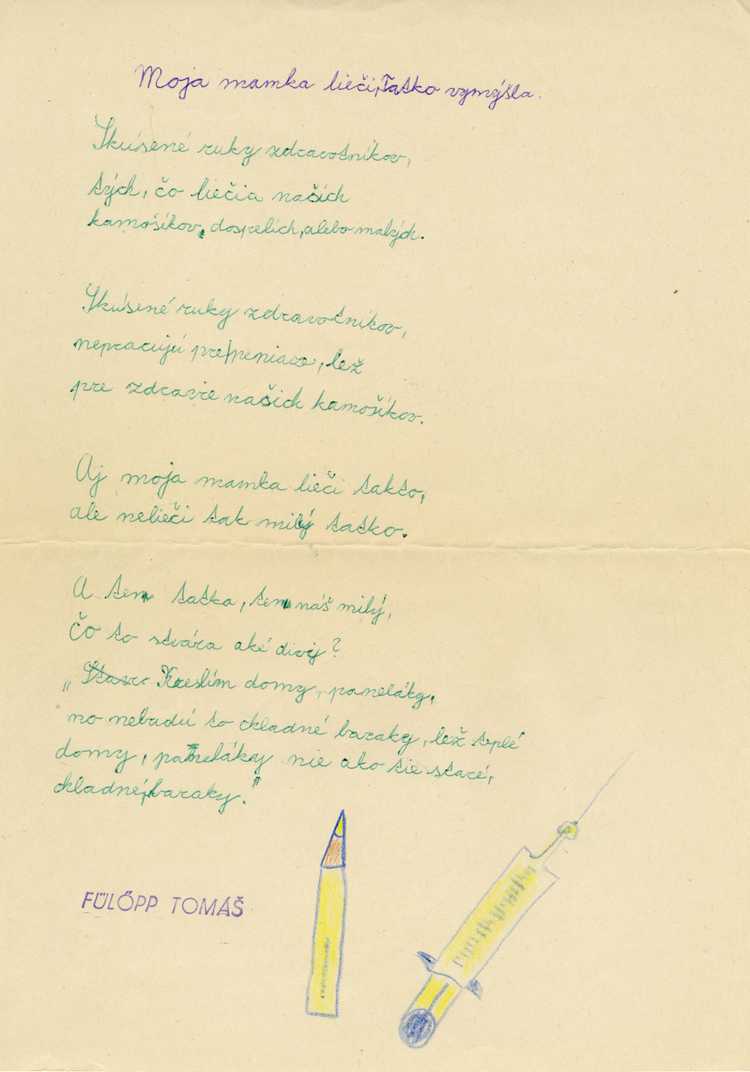 Moja mamka lieči, Tatko vymýšla.
Skúsené ruky zdravotníkov,
tých, čo liečia našich
kamošíkov, dospelích, alebo malých.
Skúsené ruky zdravotníkov,
nepracujú pre peniaze, lež
pre zdravie našich kamošíkov.
Aj moja mamka lieči takto,
ale nelieči tak milý tatko.
A ten tatka, ten náš milý,
Čo to stvára aké divy?
„Kreslím domy, paneláky,
no nebudú to chladné baraky, lež teplé
domy, paneláky nie ako tie staré,
chladné, baraky."
FÜLÖPP TOMÁŠ